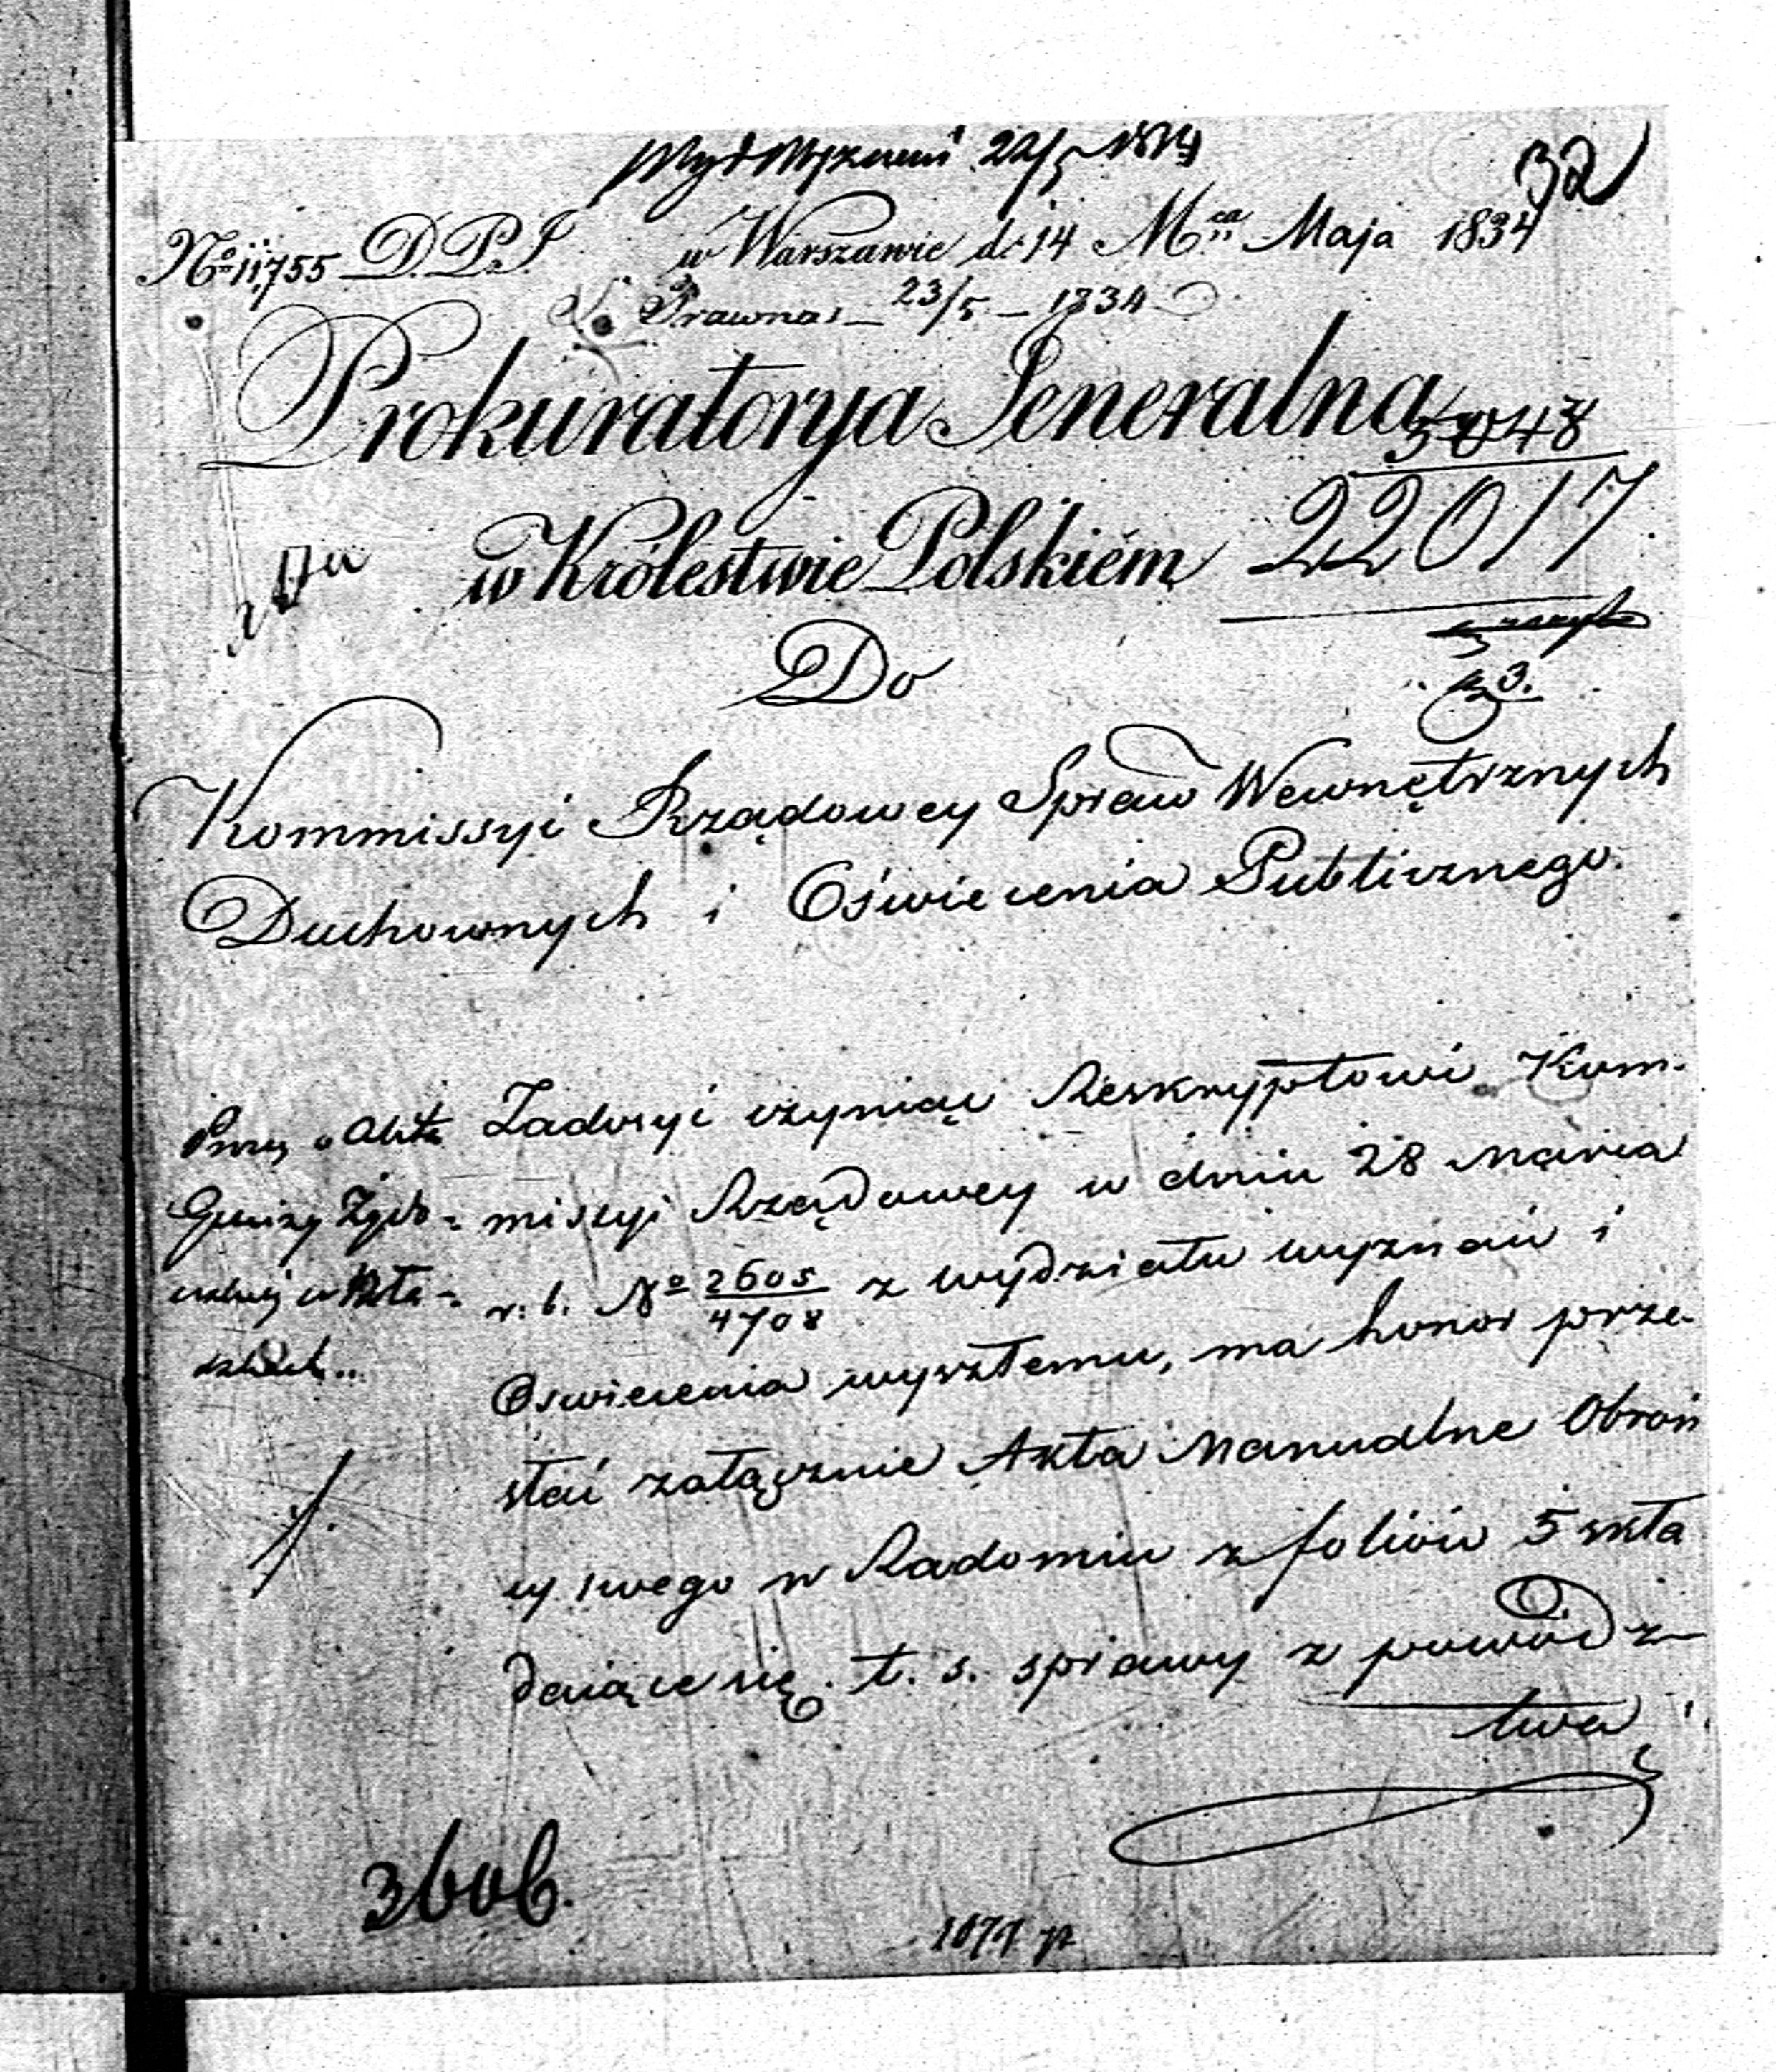 22/5 1834
32
No 11,755 D. P. J. w Warszawie d. 14 Mca Maja 1834
S. Prawna 23/5 – 1834
Prokuratorya Jeneralna
5048
w Królestwie Polskiém
22017
Do
Kommissyi Rządowey Spraw Wewnętrznych
Duchownych i Oświecenia Publicznego.
Zadosyć czyniąc Reskryptowi Kom-
missyi Rządowey w dniu 28 Marca
r: b. No 2605/4708 z wydziału wyznań i
Oswiecenia wyszłemu, ma honor prze-
słać załącznie Akta Manualne Obroń
cy swego w Radomiu z foliów 5 skła
daiące się. t. s. sprawy z powódz-
twa
Gminy Żydo-
3606.